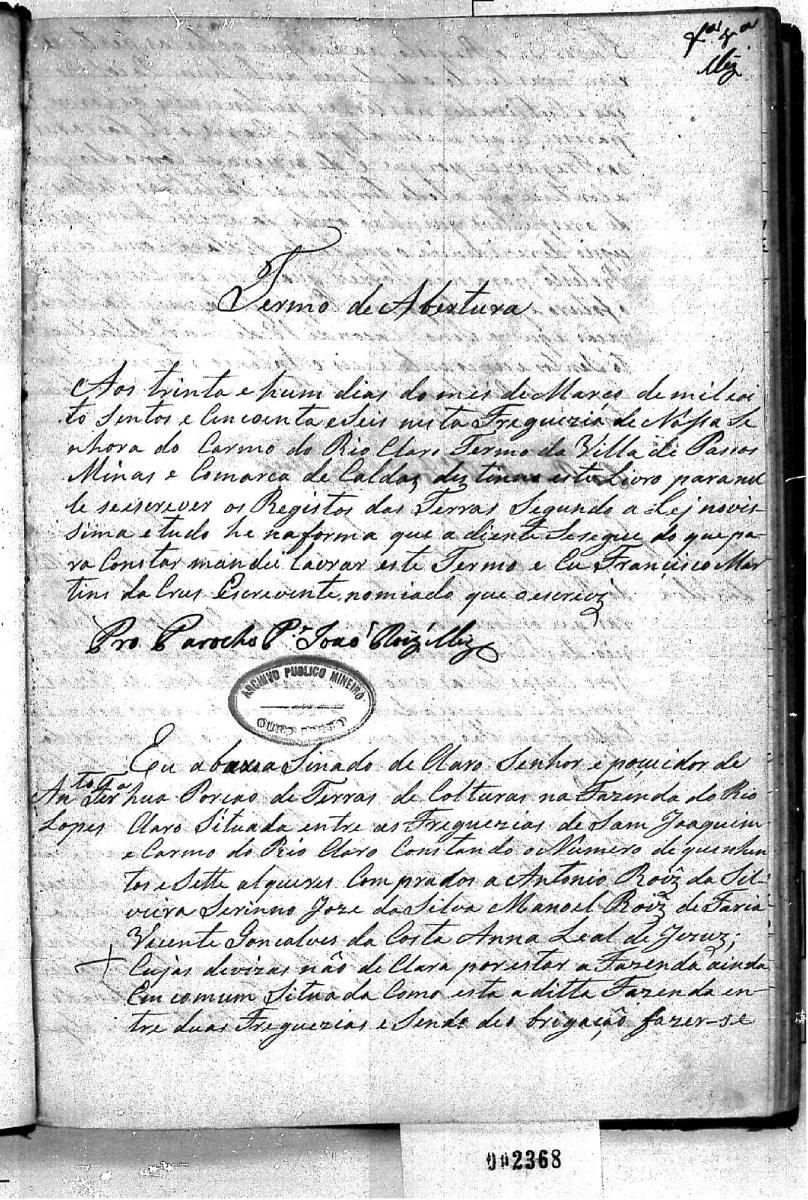 Termo de Abertura
Aos trinta e hum dias do mes de Marco de mil eoi
to Sentos e Cincoenta eseis nesta Freguezia de Nossa Se
nhora do Carmo do Rio Claro Termo da Villa de Passos
Minas e Comarca de Caldas, destinou este Livro para nel
le seescrever os Registos das Terras Segundo a Lej novis-
sima e tudo he naforma que a diente Sesegue do que pa-
ra Constar mandei Lavrar este Termo e Eu Francisco Mar
tins da Crus Escrevente nomiado que oescrevi
Pro Parocho Pe João Roiz Miz
ARCHIVO PUBLICO MINEIRO
OURO PRETO
Anto Fera
Lopes
Eu abaxa Sinado de Claro Senhor e pocuidor de
hua Porcao de Terras de Colturas na Fazenda do Rio
Claro Situada entre as Freguezias de Sam Joaquim
e Carmo do Rio Claro Constando o Numero de quenhen
tos e Sette alqueres Comprados a Antonio Roiz da Sil-
veira Serinno Joze da Silva Manoel Roiz de Faria
Vecente Goncalves da Costa Anna Leal de Jezuz;
Cujas devizas não de Clara por estar a Fazenda ainda
Em comum Situada Como esta a ditta Fazenda en-
tre duas Freguezias e Sendo de o brigação fazer-se
002368